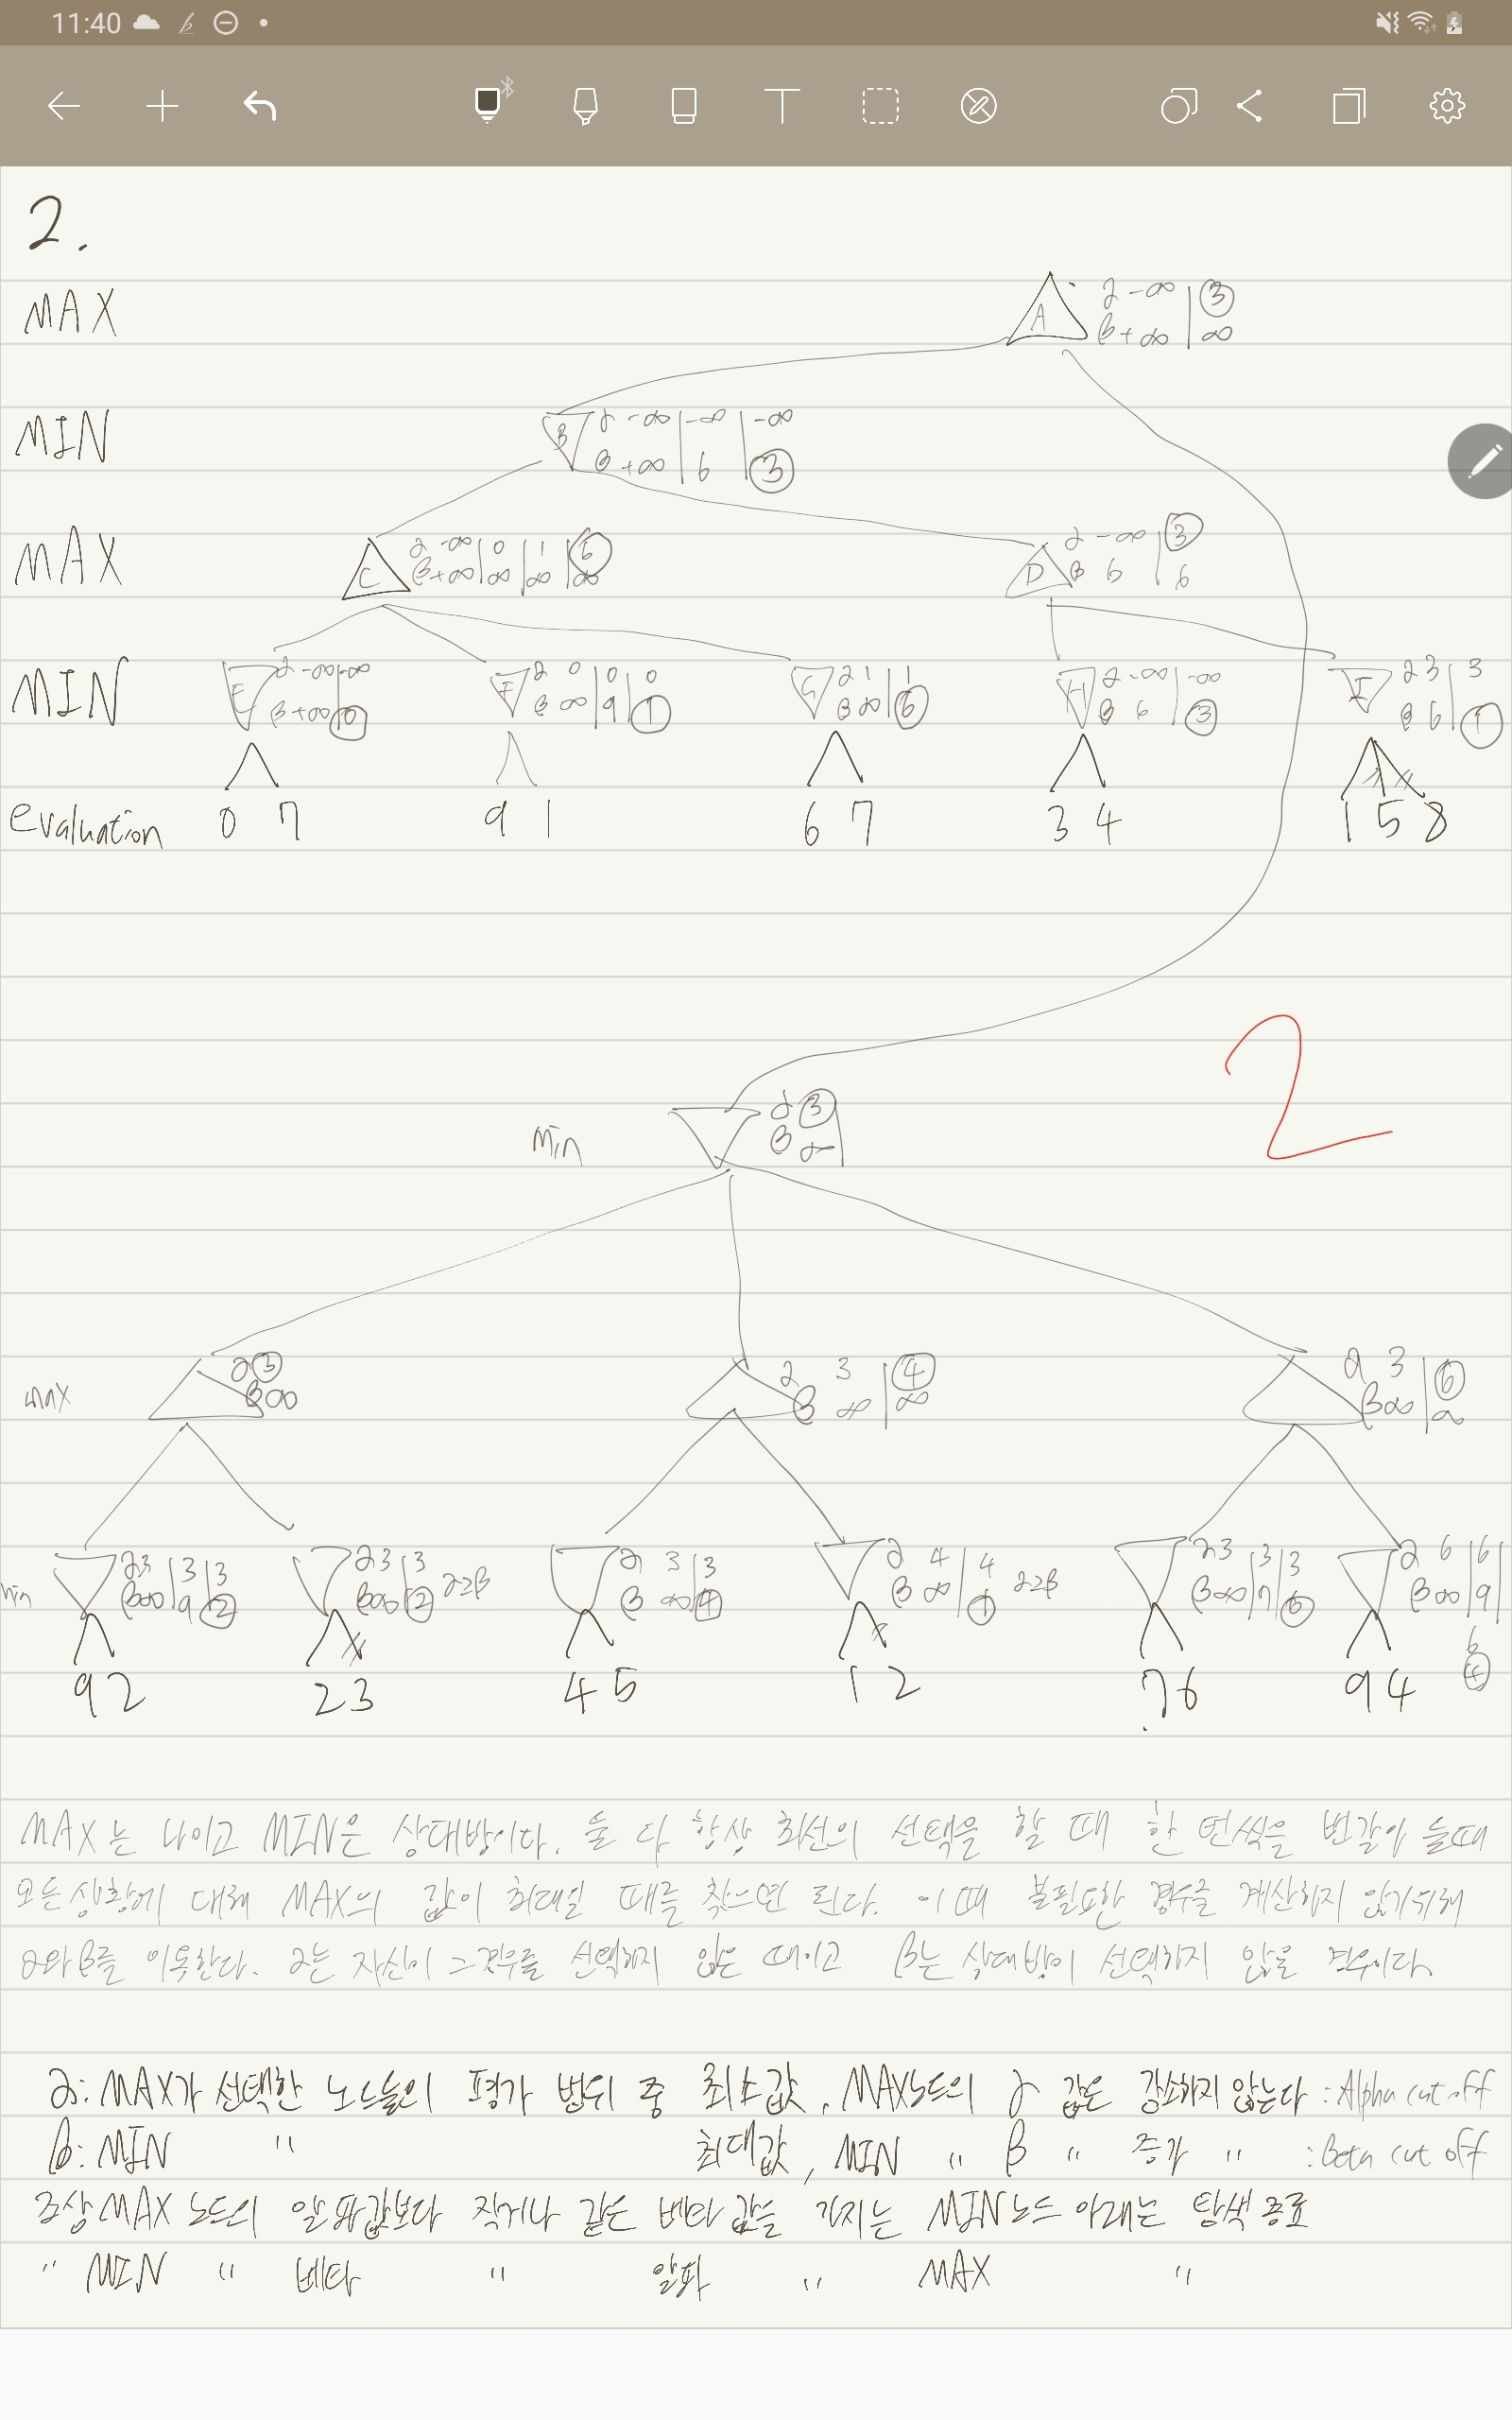 11:40
2.
MAX
A α -∞ | 3
β +∞ | ∞
MIN
B α -∞ | -∞ | -∞
β +∞ | 6 | 3
MAX
C α -∞ | 0 | 1 | 6
β +∞ | ∞ | ∞ | ∞
D α -∞ | 3
β 6 | 6
MIN
E α -∞ | -∞
β +∞ | 0
F α 0 | 0 | 0
β ∞ | 9 | 1
G α 1 | 1
β ∞ | 6
H α -∞ | -∞
β 6 | 3
I α 3 | 3
β 6 | 1
evaluation 0 7 9 1 6 7 3 4 1 5 8
2
Min
α 3
β ∞
max
α 3
β ∞
α 3 | 4
β ∞ | ∞
α 3 | 6
β ∞ | ∞
min
α 3 | 3 | 3
β ∞ | 9 | 2
α 3 | 3
β ∞ | 2 α≥β
α 3 | 3
β ∞ | 4
α 4 | 4
β ∞ | 1 α≥β
α 3 | 3 | 3
β ∞ | 7 | 6
α 6 | 6
β ∞ | 9
6
4
9 2 2 3 4 5 1 2 7 6 9 4
MAX는 나이고 MIN은 상대방이다. 둘 다 항상 최선의 선택을 할 때 한 번씩을 번갈아 둘때
모든 상황에 대해 MAX의 값이 최대일 때를 찾으면 된다. 이 때 불필요한 경우를 계산하지 않기위해
α와 β를 이용한다. α는 자신이 그경우를 선택하지 않은 때이고 β는 상대방이 선택하지 않을 경우이다.
α: MAX가 선택한 노드들의 평가 범위 중 최소값, MAX노드의 α 값은 감소하지 않는다 : Alpha cut off
β: MIN " 최대값, MIN " β " 증가 " : Beta cut off
조상 MAX 노드의 알파값보다 작거나 같은 베타 값을 가지는 MIN노드 아래는 탐색 종료
" MIN " 베타 " 알파 " MAX "